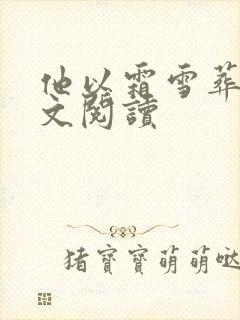 他以霜雪葬
文閱讀
猪寶寶萌萌哒